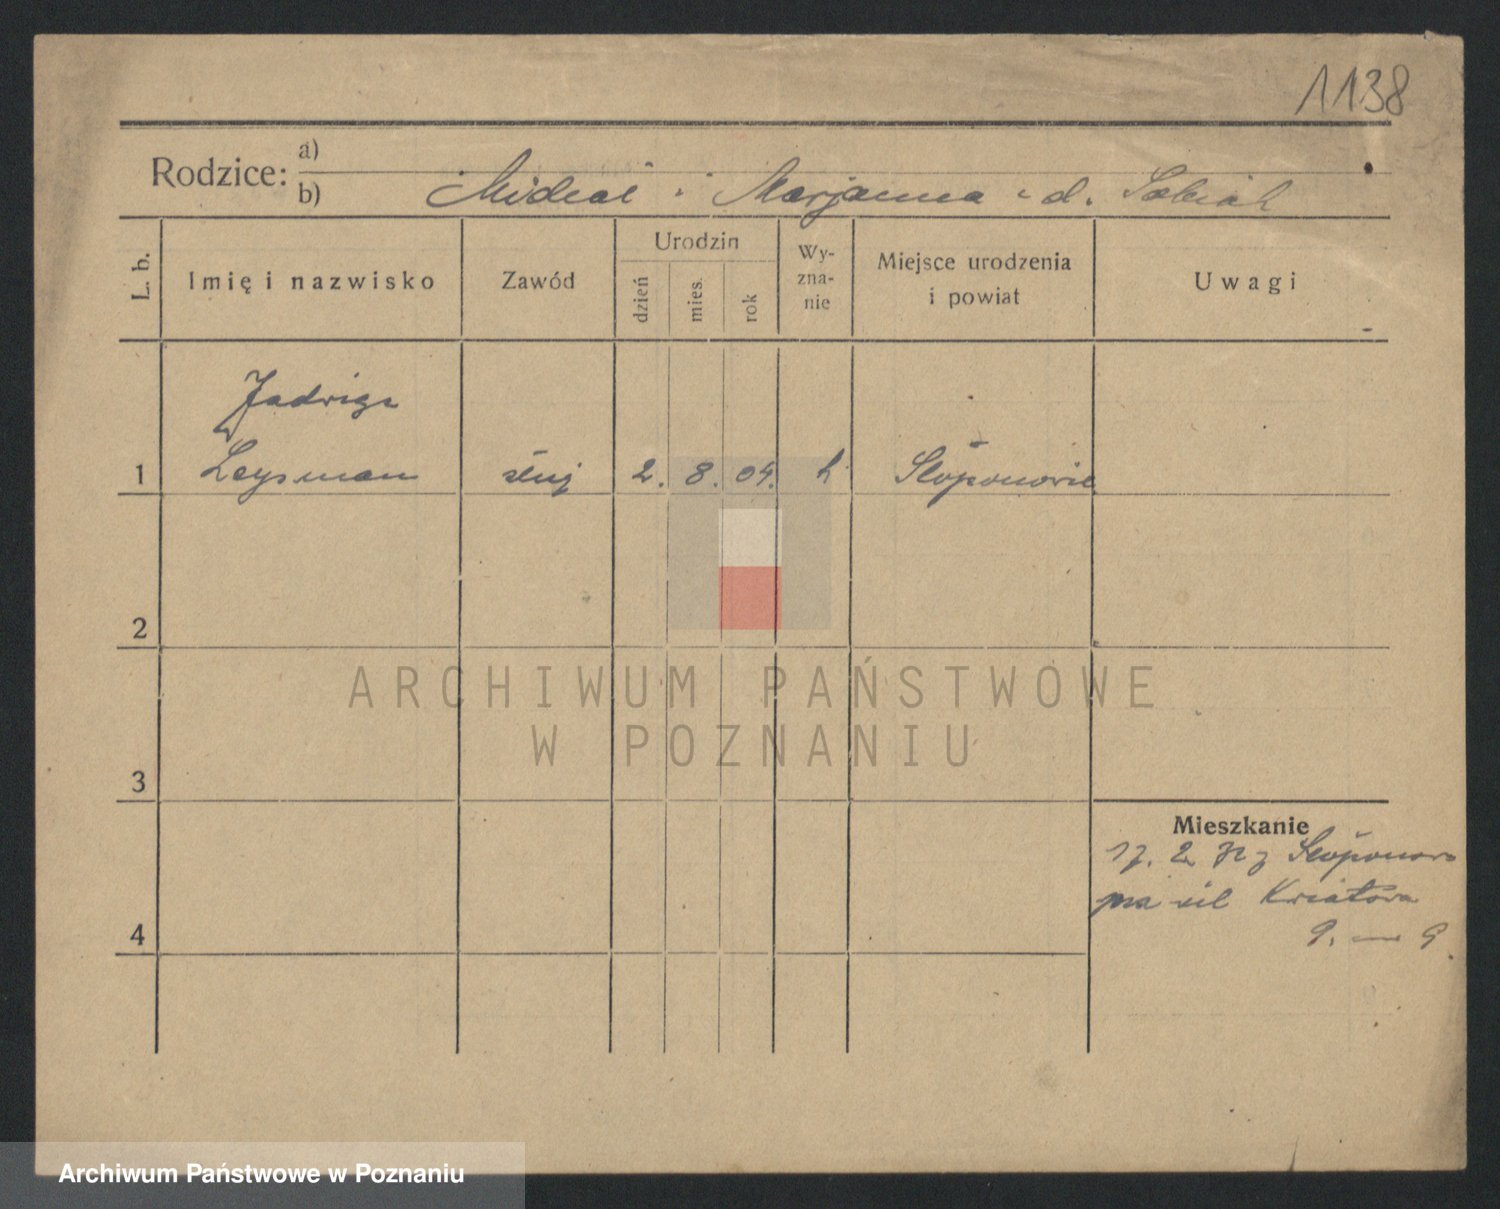 1138
Rodzice: a)
b) Michał i Marjanna z d. Sobiak
L. b.
Imię i nazwisko
Zawód
Urodzin
dzień
mies.
rok
Wy-
zna-
nie
Miejsce urodzenia
i powiat
Uwagi
Jadwiga
1 Leysman służ 2. 8. 04. k
2
3
4
Mieszkanie
na ul Kwiatowa
9. — 9.
ARCHIWUM PAŃSTWOWE
W POZNANIU
Archiwum Państwowe w Poznaniu